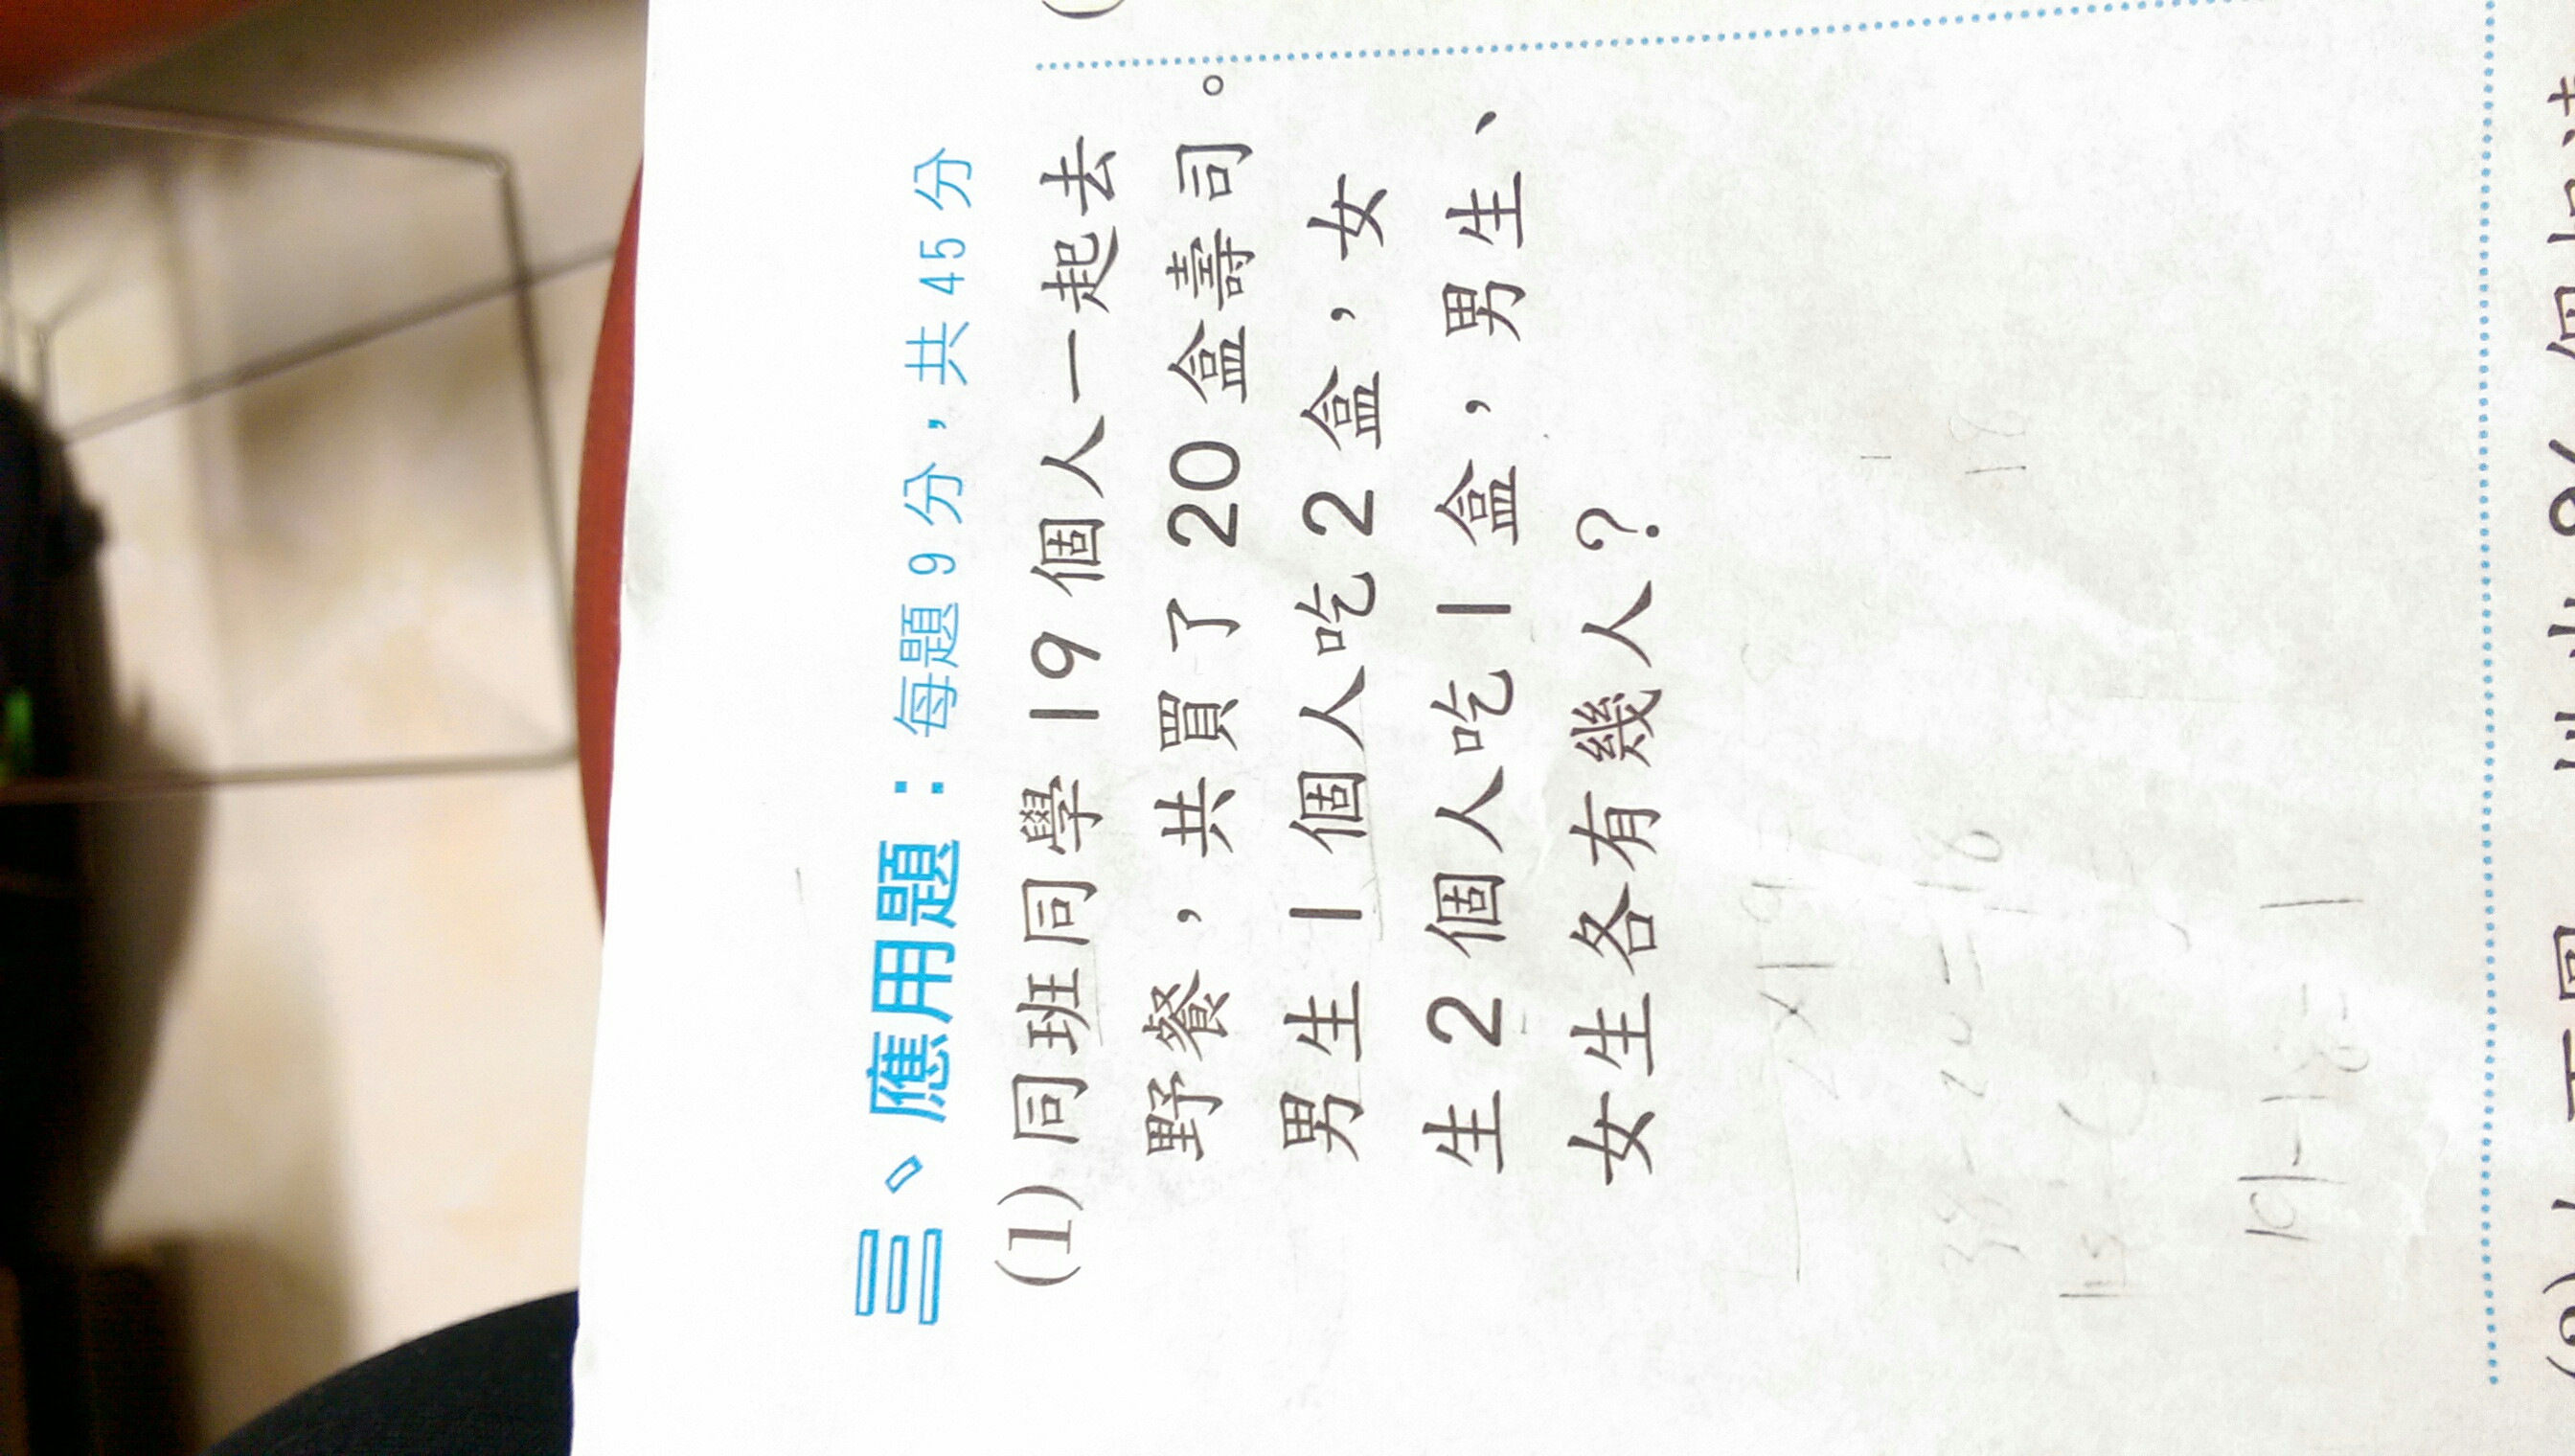 三、應用題：每題9分，共45分
(1)同班同學19個人一起去
野餐，共買了20盒壽司。
男生1個人吃2盒，女
生2個人吃1盒，男生、
女生各有幾人？
2×19
38-20=18
19-18=1